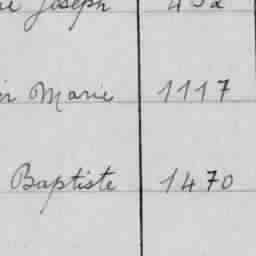 Joseph 432
Marie 1117
Baptiste 1470